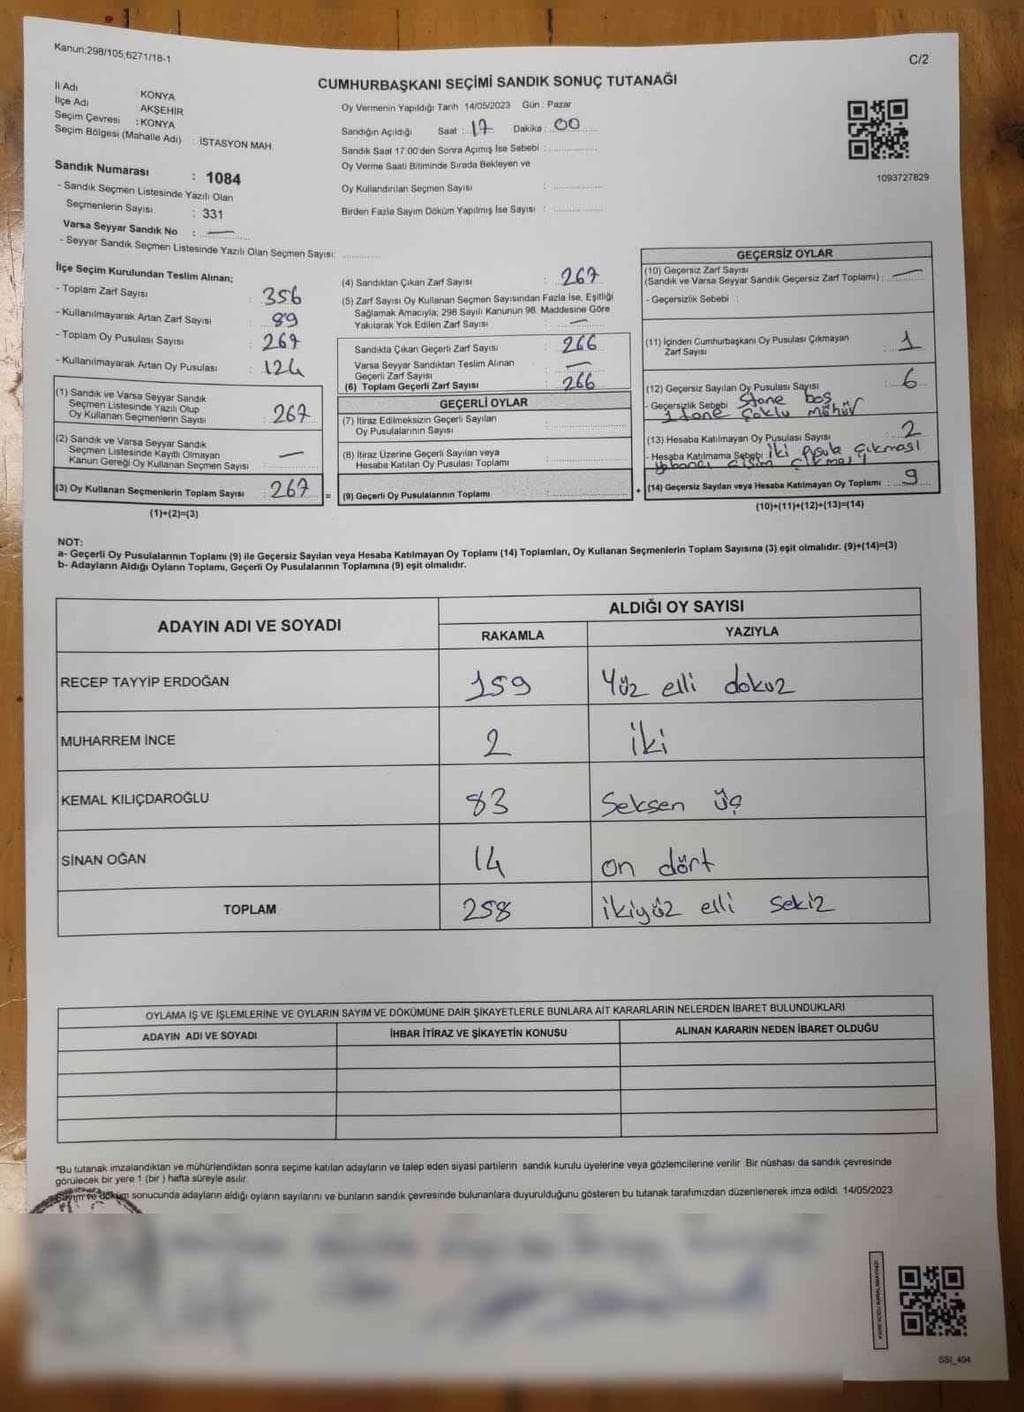 Kanun;298/105,6271/18-1
C/2
CUMHURBAŞKANI SEÇİMİ SANDIK SONUÇ TUTANAĞI
İl Adı : KONYA
İlçe Adı : AKŞEHİR
Seçim Çevresi : KONYA
Seçim Bölgesi (Mahalle Adı) : İSTASYON MAH.
Sandık Numarası : 1084
- Sandık Seçmen Listesinde Yazılı Olan
Seçmenlerin Sayısı : 331
Varsa Seyyar Sandık No : —
- Seyyar Sandık Seçmen Listesinde Yazılı Olan Seçmen Sayısı:
Oy Vermenin Yapıldığı Tarih 14/05/2023 Gün : Pazar
Sandığın Açıldığı Saat : 17 Dakika : 00
Sandık Saat 17:00'den Sonra Açılmış İse Sebebi :
Oy Verme Saati Bitiminde Sırada Bekleyen ve
Oy Kullandırılan Seçmen Sayısı :
Birden Fazla Sayım Döküm Yapılmış İse Sayısı :
1093727829
İlçe Seçim Kurulundan Teslim Alınan;
- Toplam Zarf Sayısı : 356
- Kullanılmayarak Artan Zarf Sayısı : 89
- Toplam Oy Pusulası Sayısı : 267
- Kullanılmayarak Artan Oy Pusulası : 124
(1) Sandık ve Varsa Seyyar Sandık
Seçmen Listesinde Yazılı Olup
Oy Kullanan Seçmenlerin Sayısı : 267
(2) Sandık ve Varsa Seyyar Sandık
Seçmen Listesinde Kayıtlı Olmayan
Kanun Gereği Oy Kullanan Seçmen Sayısı : —
(3) Oy Kullanan Seçmenlerin Toplam Sayısı : 267
(1)+(2)=(3)
(4) Sandıktan Çıkan Zarf Sayısı : 267
(5) Zarf Sayısı Oy Kullanan Seçmen Sayısından Fazla İse, Eşitliği
Sağlamak Amacıyla; 298 Sayılı Kanunun 98. Maddesine Göre
Yakılarak Yok Edilen Zarf Sayısı : —
Sandıkta Çıkan Geçerli Zarf Sayısı : 266
Varsa Seyyar Sandıktan Teslim Alınan
Geçerli Zarf Sayısı : —
(6) Toplam Geçerli Zarf Sayısı : 266
GEÇERLİ OYLAR
(7) İtiraz Edilmeksizin Geçerli Sayılan
Oy Pusulalarının Sayısı :
(8) İtiraz Üzerine Geçerli Sayılan veya
Hesaba Katılan Oy Pusulası Toplamı :
= (9) Geçerli Oy Pusulalarının Toplamı :
GEÇERSİZ OYLAR
(10) Geçersiz Zarf Sayısı
(Sandık ve Varsa Seyyar Sandık Geçersiz Zarf Toplamı) : —
- Geçersizlik Sebebi :
(11) İçinden Cumhurbaşkanı Oy Pusulası Çıkmayan
Zarf Sayısı : 1
(12) Geçersiz Sayılan Oy Pusulası Sayısı : 6
- Geçersizlik Sebebi 5tane boş
1 tane Çoklu Mühür
(13) Hesaba Katılmayan Oy Pusulası Sayısı : 2
- Hesaba Katılmama Sebebi İki Pusula Çıkması
yabancı cisim çıkması
+ (14) Geçersiz Sayılan veya Hesaba Katılmayan Oy Toplamı : 9
(10)+(11)+(12)+(13)=(14)
NOT:
a- Geçerli Oy Pusulalarının Toplamı (9) ile Geçersiz Sayılan veya Hesaba Katılmayan Oy Toplamı (14) Toplamları, Oy Kullanan Seçmenlerin Toplam Sayısına (3) eşit olmalıdır. (9)+(14)=(3)
b- Adayların Aldığı Oyların Toplamı, Geçerli Oy Pusulalarının Toplamına (9) eşit olmalıdır.
ADAYIN ADI VE SOYADI
ALDIĞI OY SAYISI
RAKAMLA YAZIYLA
RECEP TAYYİP ERDOĞAN 159 Yüz elli dokuz
MUHARREM İNCE 2 iki
KEMAL KILIÇDAROĞLU 83 Seksen üç
SİNAN OĞAN 14 on dört
TOPLAM 258 ikiyüz elli sekiz
OYLAMA İŞ VE İŞLEMLERİNE VE OYLARIN SAYIM VE DÖKÜMÜNE DAİR ŞİKAYETLERLE BUNLARA AİT KARARLARIN NELERDEN İBARET BULUNDUKLARI
ADAYIN ADI VE SOYADI İHBAR İTİRAZ VE ŞİKAYETİN KONUSU ALINAN KARARIN NEDEN İBARET OLDUĞU
*Bu tutanak imzalandıktan ve mühürlendikten sonra seçime katılan adayların ve talep eden siyasi partilerin sandık kurulu üyelerine veya gözlemcilerine verilir. Bir nüshası da sandık çevresinde
görülecek bir yere 1 (bir ) hafta süreyle asılır.
Sayım ve döküm sonucunda adayların aldığı oyların sayılarını ve bunların sandık çevresinde bulunanlara duyurulduğunu gösteren bu tutanak tarafımızdan düzenlenerek imza edildi. 14/05/2023
SSI_404